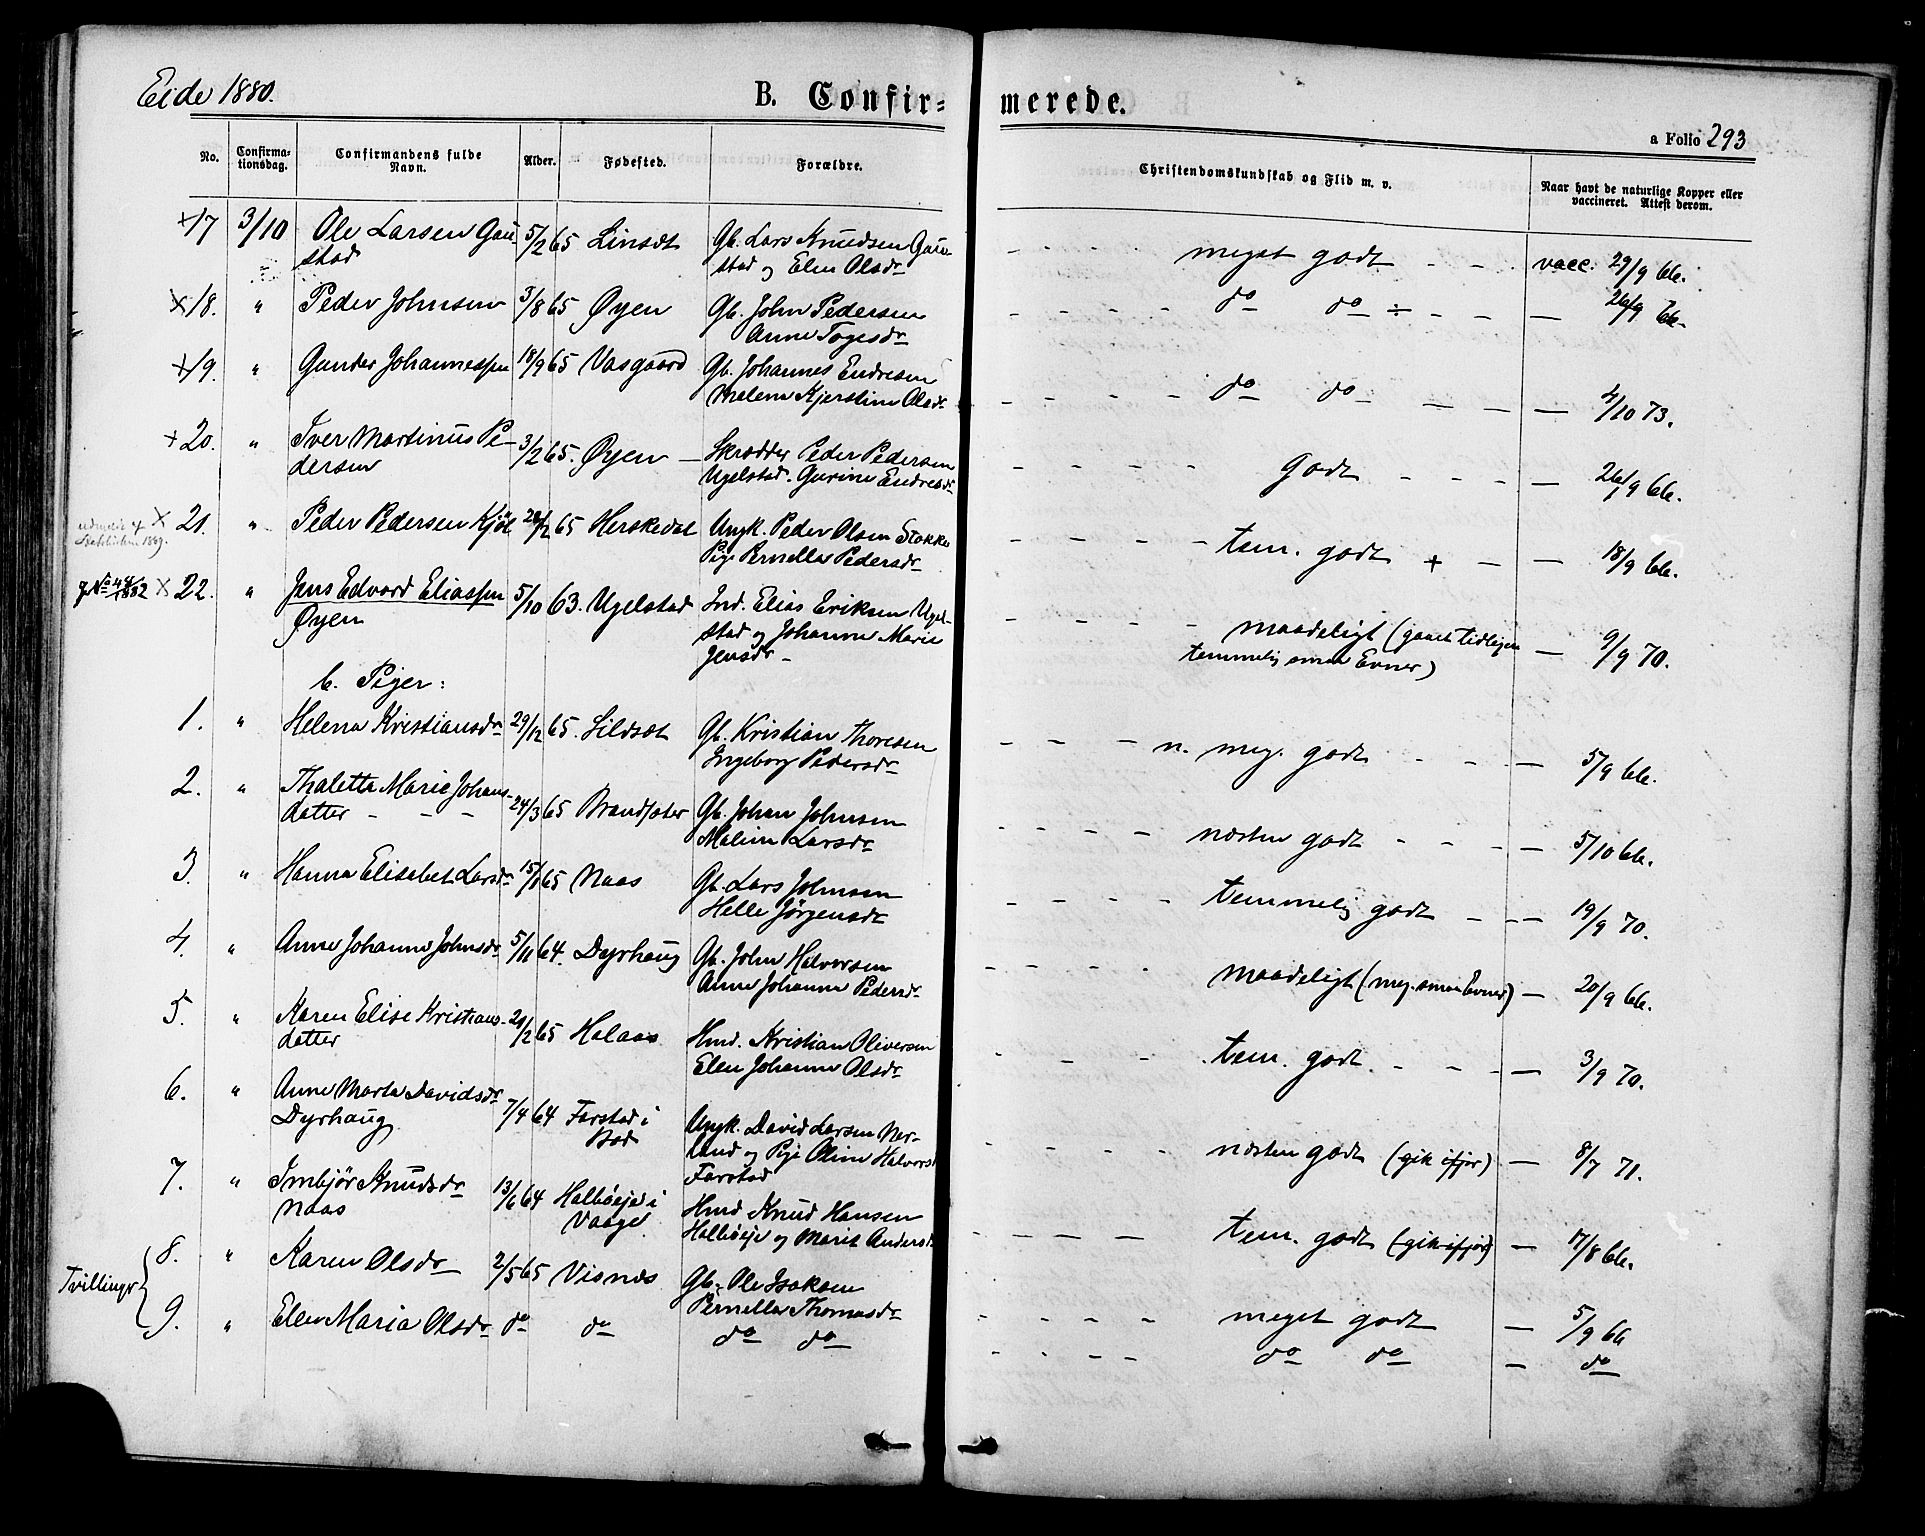 Eide 1880.
B. Confirmerede.
a Folio 293
No. Confirmationsdag. Confirmandens fulde Navn. Alder. Fødested. Forældre. Christendomskundskab og Flid m. v. Naar havt de naturlige Kopper eller vaccineret. Attest derom.
×17 3/10 Ole Larsen Gau 5/2 65 Linsæt Gb. Lars Knudsen Gau- meget godt - - vacc. 29/9 66.
stad stad og Elen Olsdr
×18. " Peder Johnsen 3/8 65 Øyen Gb. John Pedersen do do ÷ - - — 26/9 66.
Anne Togesdr
×19. " Gunder Johannessen 18/9 65 Vasgaard Gb. Johannes Endresen do do — — — 4/10 73.
Malene Kjerstine Olsdr
×20. " Iver Martinus Pe- 3/2 65. Øyen — Skrædder Peder Pedersen godt - - - — 26/9 66.
dersen Ugelstad. Gurine Endresdr
× 21. " Peder Pedersen Kjöl 65 Herskedal Ungk. Peder Olsen Stokke tem. godt + — — 18/9 66.
1869. Pige Pernelle Pedersdr
× 22. " Jens Edvard Eliassen 5/10 63. Ugelstad Ind. Elias Eriksen Ugel- maadeligt (gaaet tidligere — 9/9 70.
Øyen stad og Johanne Marie temmelig smaa Evner)
Jensdr —
b. Piger:
1. " Helena Kristiansdr 29/12 65. Sildset Gb. Kristian Thoresen n. meg. godt - - — 5/9 66.
Ingeborg Pedersdr
2. " Thaletta Marie Johans- 24/3 65 Brandsæter Gb. Johan Johnsen næsten godt - - - — 5/10 66.
datter - - - Malene Larsdr
3. " Hanna Elisabet Larsdr 65 Naas Gb. Lars Johnsen temmelig godt - - — 19/9 70.
Helle Jørgensdr
4. " Anne Johanne Johnsdr 5/11 64. Dyrhaug Gb. John Halvorsen maadeligt (meg. smaa Evner) — 20/9 66.
Anne Johanne Pedersdr
5. " Karen Elise Kristians- 65 Halaas Hmd. Kristian Oliversen tem. godt - - - — 3/9 70.
datter Elen Johanne Olsdr
6. " Anne Marta Davidsdr 7/4 64 Farstad i Ungk. David Larsen Nor- næsten godt (gik ifjor) — 8/7 71.
Dyrhaug Bod land og Pige Oline Halvorsd
Farstad
7. " Imbjør Knudsdr 13/6 64 Halbøeje i Hmd Knud Hansen tem. godt (gik ifjor) — 17/8 66.
Naas Vaage Halbøeje og Marit Andersd
Tvillinger
8. " Karen Olsdr 2/5 65 Visnæs Gb. Ole Isaksen meget godt — 5/9 66
Pernelle Thomasdr
9. " Elen Maria Olsdr do do do do do do — do